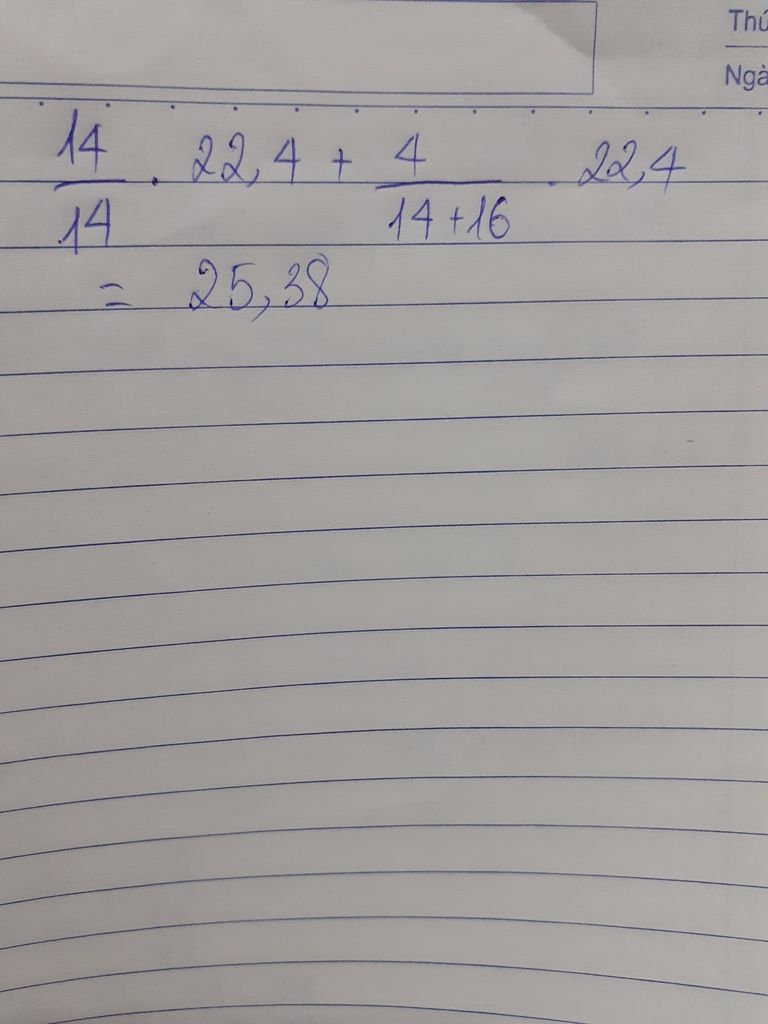 Thứ
Ngà
14/14 . 22,4 + 4/(14+16) . 22,4
= 25,38